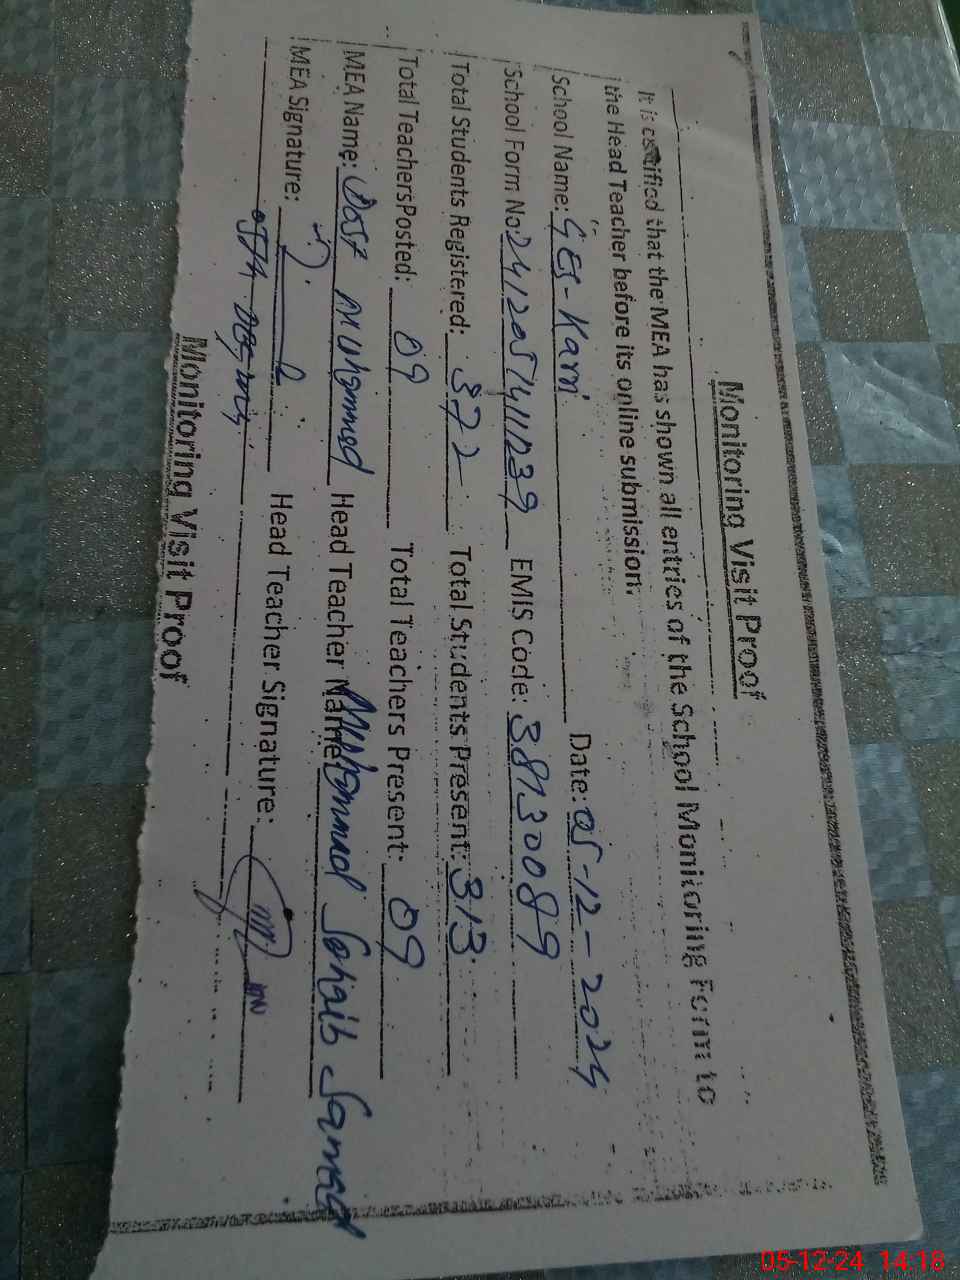 Monitoring Visit Proof
It is certified that the MEA has shown all entries of the School Monitoring Form to
the Head Teacher before its online submission.
School Name: GES-Karri Date: 05-12-2024
School Form No: 241205141239 EMIS Code: 38130089
Total Students Registered: 372 Total Students Present: 313
Total TeachersPosted: 09 Total Teachers Present: 09
MEA Name: Dost Muhammad Head Teacher Name: Muhammad Sohaib Sarmad
MEA Signature: Head Teacher Signature:
Monitoring Visit Proof
05-12-24 14:18